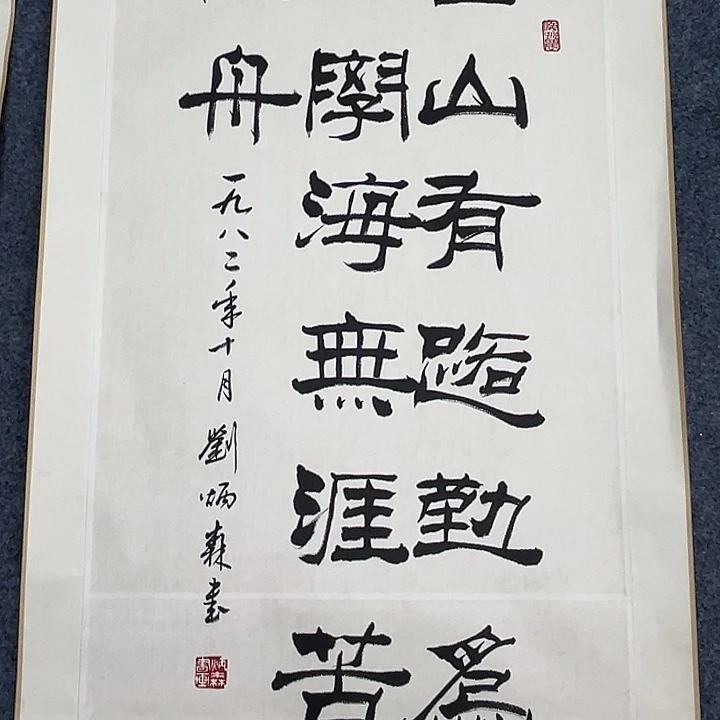 山有路勤爲
學海無涯苦
舟
一九八二年十月劉炳森書
炳森